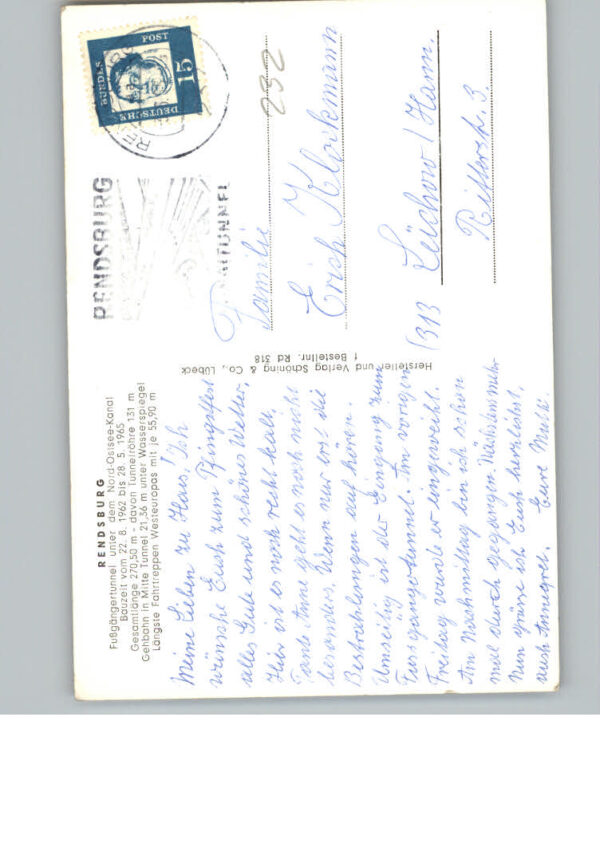 RENDSBURG
Fußgängertunnel unter dem Nord-Ostsee-Kanal
Bauzeit vom 22. 8. 1962 bis 28. 5. 1965
Gesamtlänge 270,50 m - davon Tunnelröhre 131 m
Gehbahn in Mitte Tunnel 21,36 m unter Wasserspiegel
Längste Fahrtreppen Westeuropas mit je 55,90 m
Meine Lieben zu Haus! Ich
wünsche Euch zum Pfingstfest
alles Gute und schönes Wetter,
Hier ist es noch recht kalt,
Tante Anne geht es noch nicht
besonders. Wenn nur erst die
Bestrahlungen auf hören.
Umseitig ist der Eingang zum
Fussgängertunnel. Am vorigen
Freitag wurde er eingeweiht.
Am Nachmittag bin ich schon
mal durch gegangen.
Nun grüsse ich Euch herzlichst,
auch Annegret. Eure Mutti.
Hersteller und Verlag Schöning & Co., Lübeck
f Bestellnr. Rd 318
RENDSBURG
TUNNEL
DEUTSCHE
BUNDES
POST
15
232
Familie
Erich Klockmann
(313 Lüchow / Hann.
Ritterstr. 3.